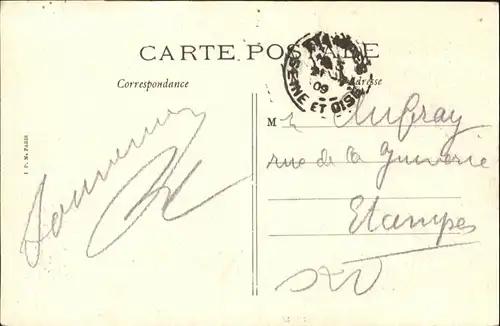 CARTE POSTALE
ETAMPES
09
SEINE ET OISE
Correspondance
Adresse
M
Aufray
rue de la Juiverie
Etampes
Souvenir
I P. M. PARIS